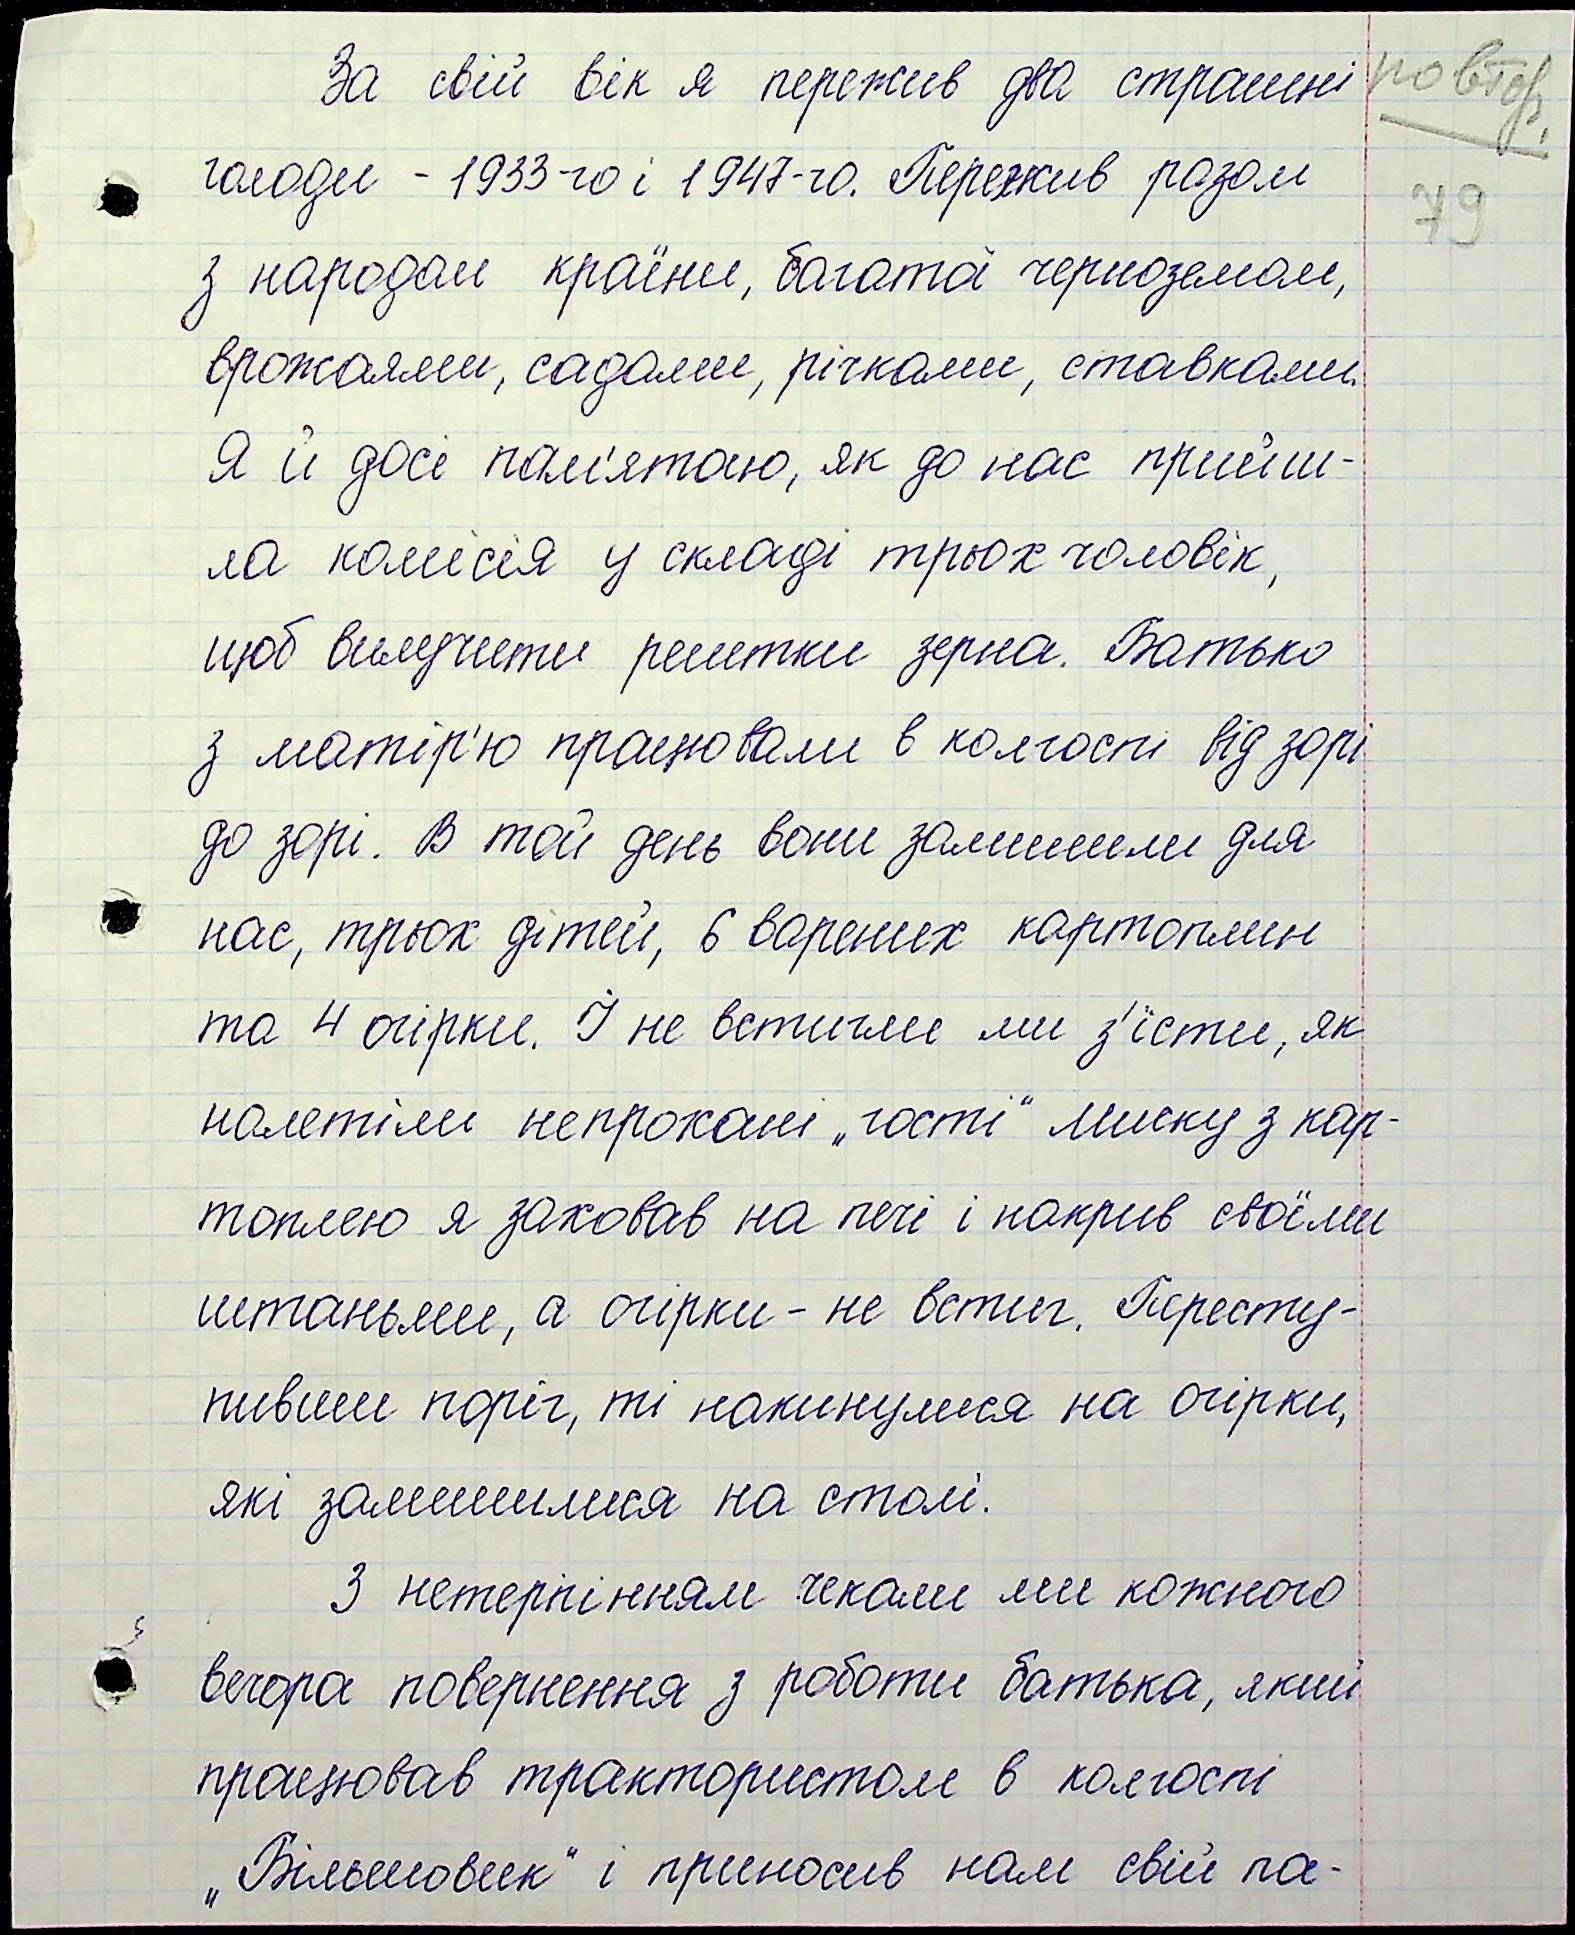 За свій вік я пережив два страшні
повтор.
голоди - 1933-го і 1947-го. Пережив разом
79
з народом країни, багатой чорноземом,
врожаями, садами, річками, ставками.
Я й досі пам'ятаю, як до нас прийш-
ла комісія у складі трьох чоловік,
щоб вилучити решітки зерна. Батько
з матір'ю працювали в колгоспі від зорі
до зорі. В той день вони залишили для
нас, трьох дітей, 6 варених картоплин
та 4 огірки. Й не встигли ми з'їсти, як
налетіли непрохані „гості“ Миску з кар-
топлею я заховав на печі і накрив своїми
штаньми, а огірки - не встиг. Пересту-
пивши поріг, ті накинулися на огірки,
які залишилися на столі.
З нетерпінням чекали ми кожного
вечора повернення з роботи батька, який
працював трактористом в колгоспі
„Більшовик“ і приносив нам свій па-